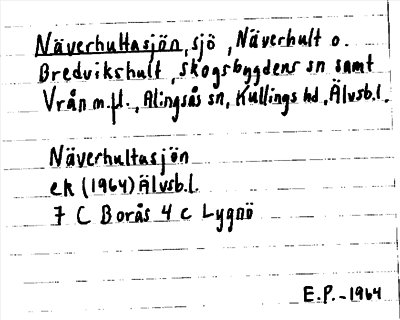 Näverhultasjön, sjö, Näverhult o.
Bredvikshult, Skogsbygdens sn samt
Vrån m.fl., Alingsås sn, Kullings hd, Älvsb.l.
Näverhultasjön
ek (1964) Älvsb.l.
7 C Borås 4 c Lygnö
E.P.-1964